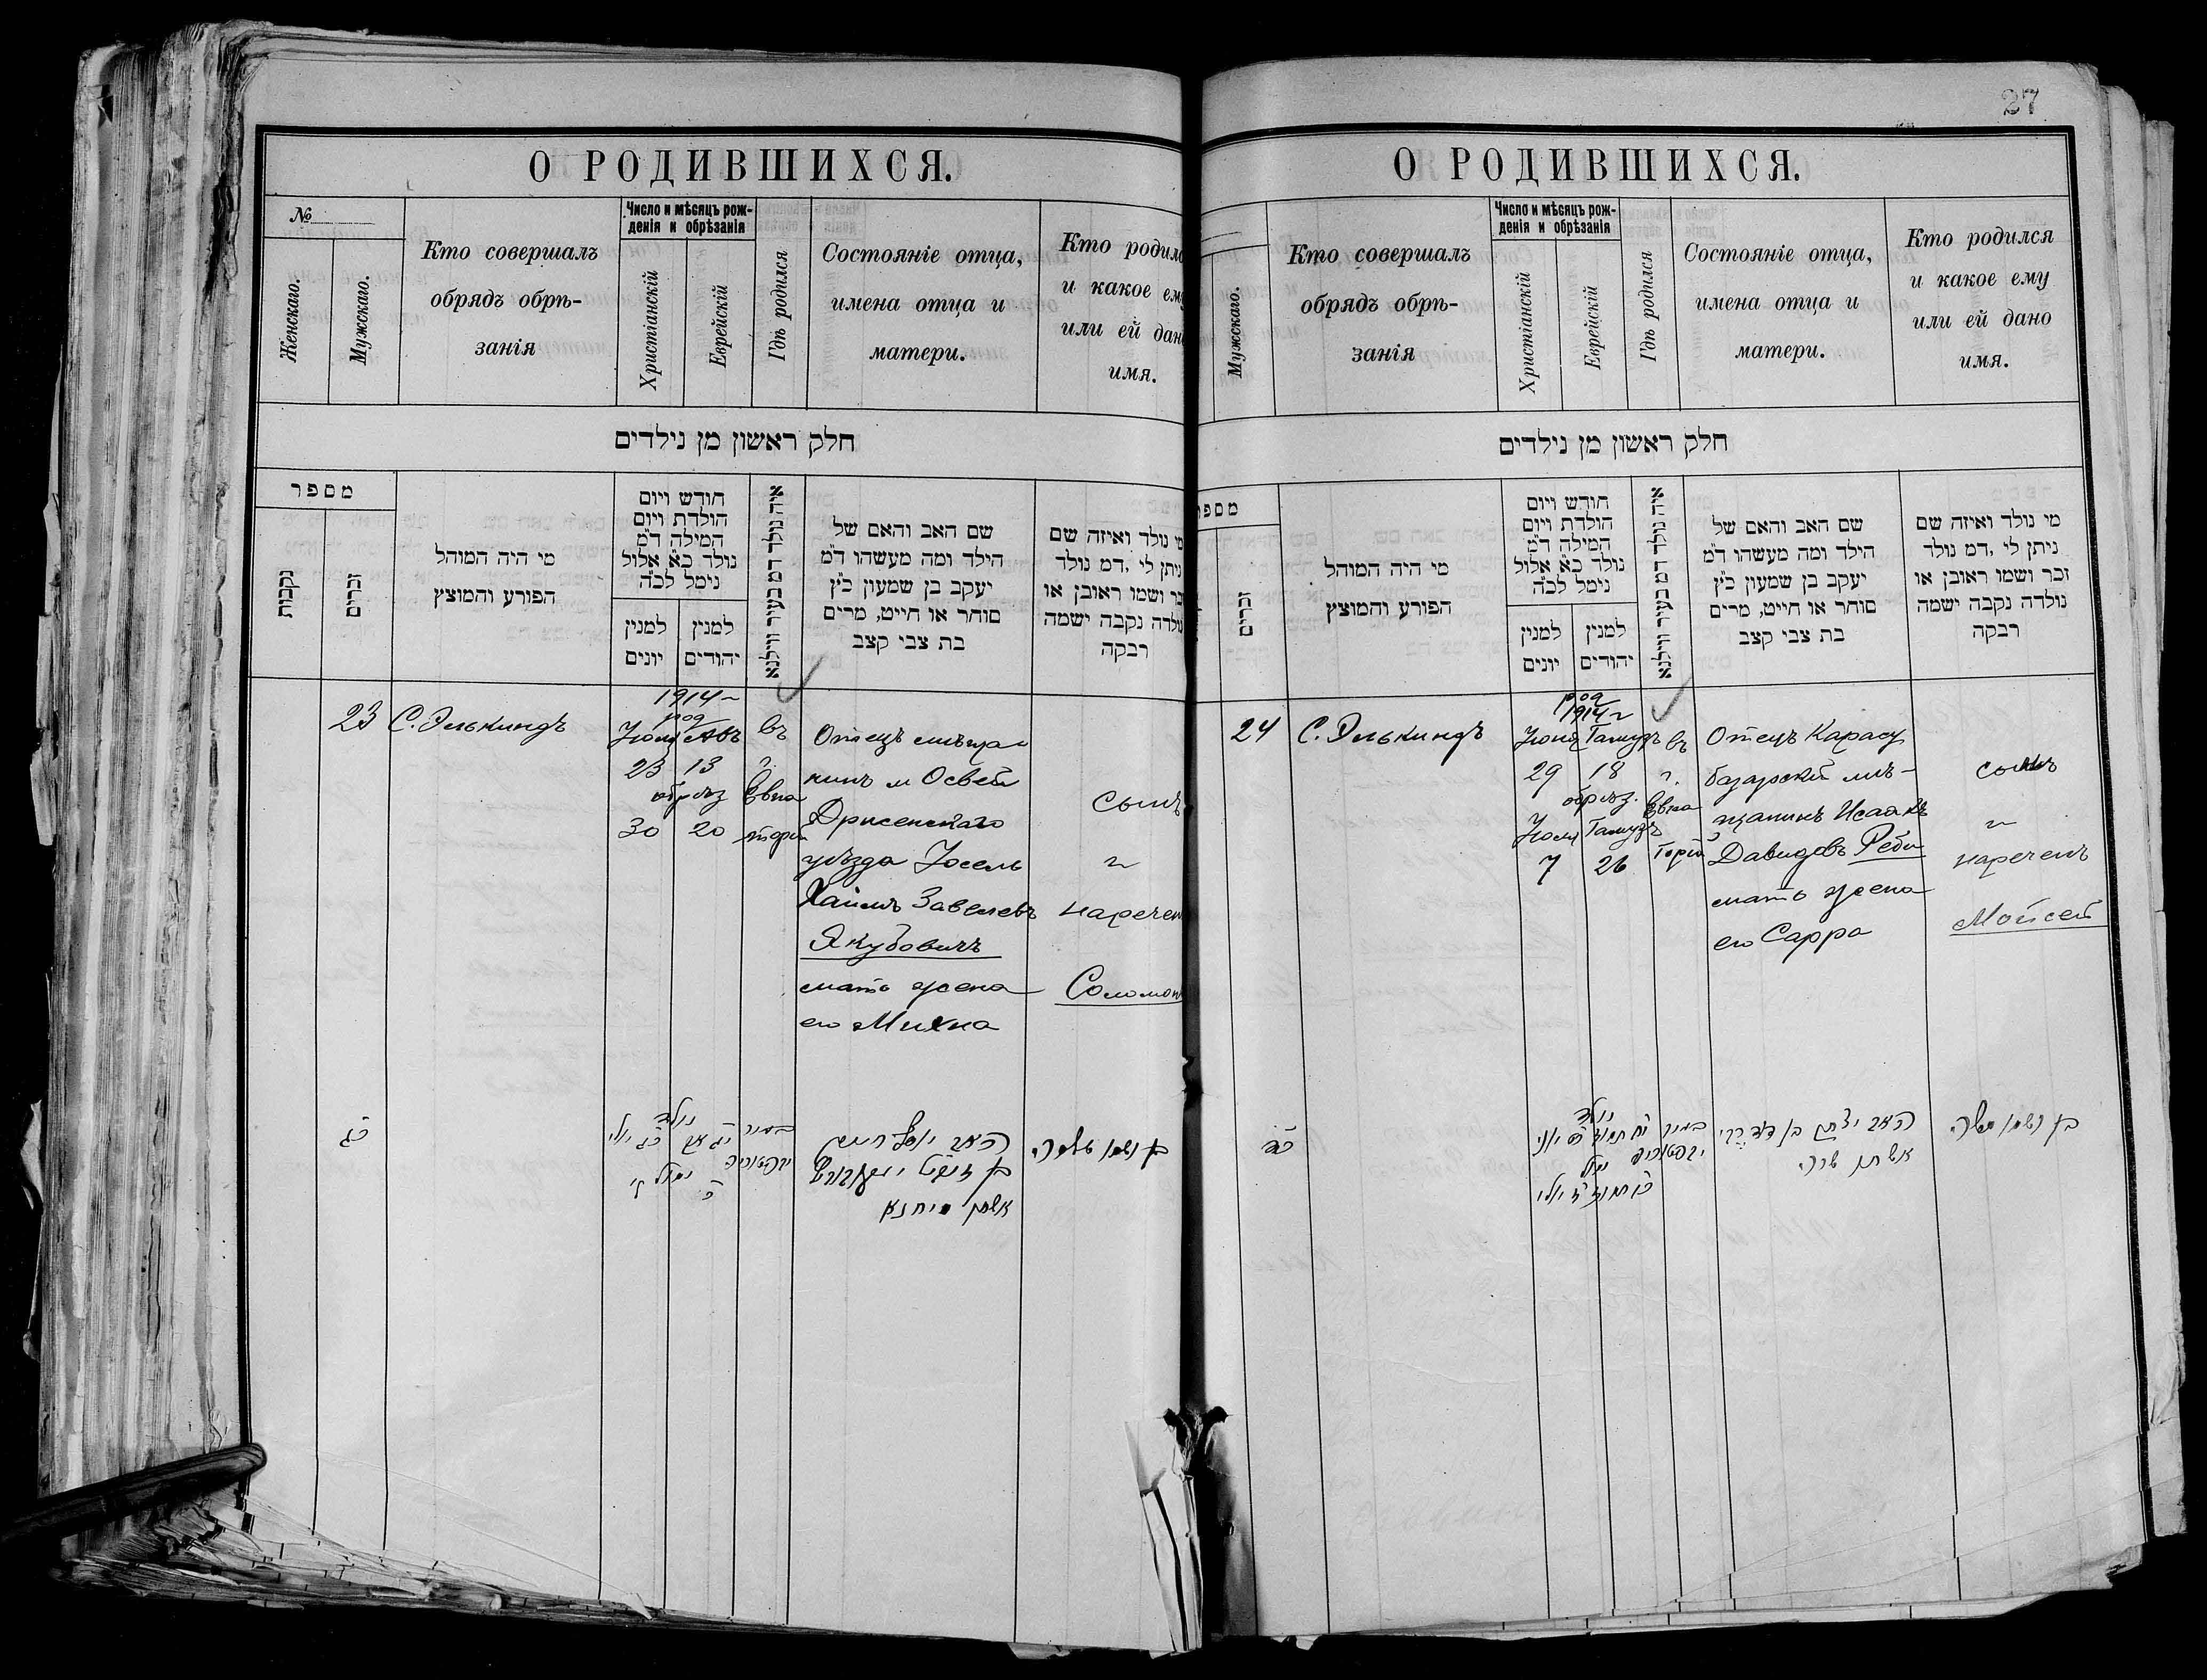 О РОДИВШИХСЯ.
№
Женскаго.
Мужскаго.
Кто совершалъ
обрядъ обрѣ-
занія
Число и мѣсяцъ рож-
денія и обрѣзанія
Христіанскій
Еврейскій
Гдѣ родился
Состояніе отца,
имена отца и
матери.
Кто родилс
и какое ему
или ей дано
имя.
חלק ראשון מן נילדים
מספר
נקבות
זכרים
מי היה המוהל
הפורע והמוצץ
חודש ויום
הולדת ויום
המילה ד״מ
נולד כ״א אלול
נימל לכ״ה
למנין
יונים
למנין
יהודים
איה נולד דמ בעיר ווילנא
שם האב והאם של
הילד ומה מעשהו ד״מ
יעקב בן שמעון כ״ץ
סוחר או חייט, מרים
בת צבי קצב
מי נולד ואיזה שם
ניתן לי, דמ נולד
זכר ושמו ראובן או
נולדה נקבה ישמה
רבקה
23
С. Элькиндъ
1914 г
род
Іюля Авъ
23 13
обрѣз
30 20
въ
г.
Евпа
торіи
Отецъ мѣща
нинъ м Освей
Дрисенскаго
уѣзда Іосель
Хаимъ Завелевъ
Якубовичъ
мать жена
его Михна
Сынъ
нареченъ
Соломонъ
כג
נולד
יג אב כג יולי
נמול
כ ל׳
בעיר
יבפטוריה
האב יוסף חיים
בן זעוויל יאקובוביץ
אשתו מיחנא
בן ושמו שלמה
27
О РОДИВШИХСЯ.
Мужскаго.
Кто совершалъ
обрядъ обрѣ-
занія
Число и мѣсяцъ рож-
денія и обрѣзанія
Христіанскій
Еврейскій
Гдѣ родился
Состояніе отца,
имена отца и
матери.
Кто родился
и какое ему
или ей дано
имя.
חלק ראשון מן נילדים
מספר
זכרים
מי היה המוהל
הפורע והמוצץ
חודש ויום
הולדת ויום
המילה ד״מ
נולד כ״א אלול
נימל לכ״ה
למנין
יונים
למנין
יהודים
איה נולד דמ בעיר ווילנא
שם האב והאם של
הילד ומה מעשהו ד״מ
יעקב בן שמעון כ״ץ
סוחר או חייט, מרים
בת צבי קצב
מי נולד ואיזה שם
ניתן לי, דמ נולד
זכר ושמו ראובן או
נולדה נקבה ישמה
רבקה
24
С. Элькиндъ
род
1914 г
Іюня Тамузъ
29 18
обрѣз.
Іюля Тамузъ
7 26
въ
г.
Евпа
торіи
Отецъ Карасу
базарскій мѣ-
щанинъ Исаакъ
Давидовъ Реби
мать жена
его Сарра
сынъ
нареченъ
Мойсей
כד
נולד
יח תמוז כט יוני
נמול
כו תמוז ז יולי
בעיר
יבפטוריה
האב יצחק בן דוד רבי
אשתו שרה
בן ושמו משה